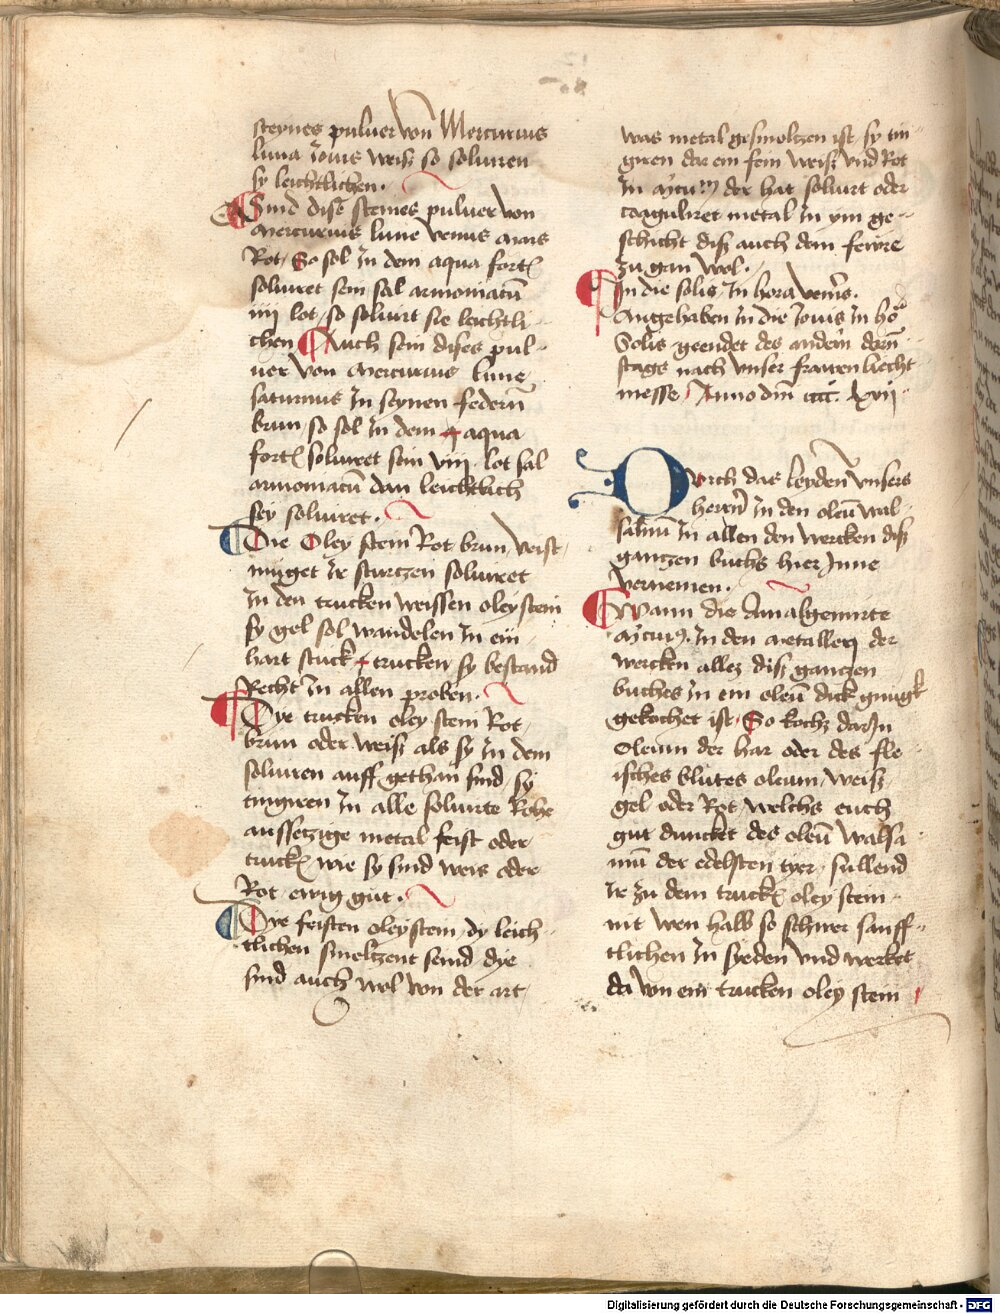 steynes puluer von Mercurius
luna Jouis weiß so soluiren
sy leichtlichen.
Sind dise steines puluer von
Mercurius lune venus mars
Rot, So sol Jn dem aqua fort
soluiret sein sal armoniacū
iiij lot, so soluirt sie leichtli
chen Auch sein dises pul
uer von Mercurius lune
saturnus Jn seynen federn
brun, so sol Jn dem aqua
fort soluiret sein viij lot sal
armoniacū dan leichtlich
sey soluiret.
Die Oley stein Rot brun, weiß
muget Jr sturtzen soluiret
Jn den trucken weissen oley stein
sy gel sol wandelen Jn ein
hart stuck trucken, sy bestand
Recht Jn allen proben.
Dye trucken oley stein Rot
brun oder weiß als sy Jn dem
soluiren auff gethan sind, sy
tingiren Jn alle soluirte Rohe
aussetzige metal feist oder
truck wie sy sind weis oder
Rot, ewig gut.
Dye feisten oley stein, dy leich
tlichen smeltzent seind dye
sind auch wol von der art
was metal gesmoltzen ist, sy tin
giren dar ein fein weiß vnd Rot
Jn der hat soluirt oder
coaguliret metal Jn ym ge
schicht diß auch dem fewre
zu gan wol.
Jn die solis, Jn hora veneris.
Angehaben Jn die Jouis Jn ho
Solis geendet des andern dorn
stags nach vnser frawen liecht
messe, Anno dm̄ cccc lxvij
Durch das leyden vnsers
herrn Jn den oleū wal
samū Jn allen den wercken diß
gantzen buchs hier Jnne
vernemen.
Wann die Amalgemirte
Jn den metallen der
wercken allez diß gantzen
buches Jn ein oleū dick gnugk
gekochet ist, So kochz darJn
Oleum der har oder des fle
isches blutes oleum, weiß
gel oder Rot, welchs euch
gut duncket des oleū walsa
mū der edelsten tyer, sullend
Jr zu dem truck oley stein
nit wen halb so schwer sanff
tlichen Jn syeden vnd werket
da von ein trucken oley stein
Digitalisierung gefördert durch die Deutsche Forschungsgemeinschaft - DFG